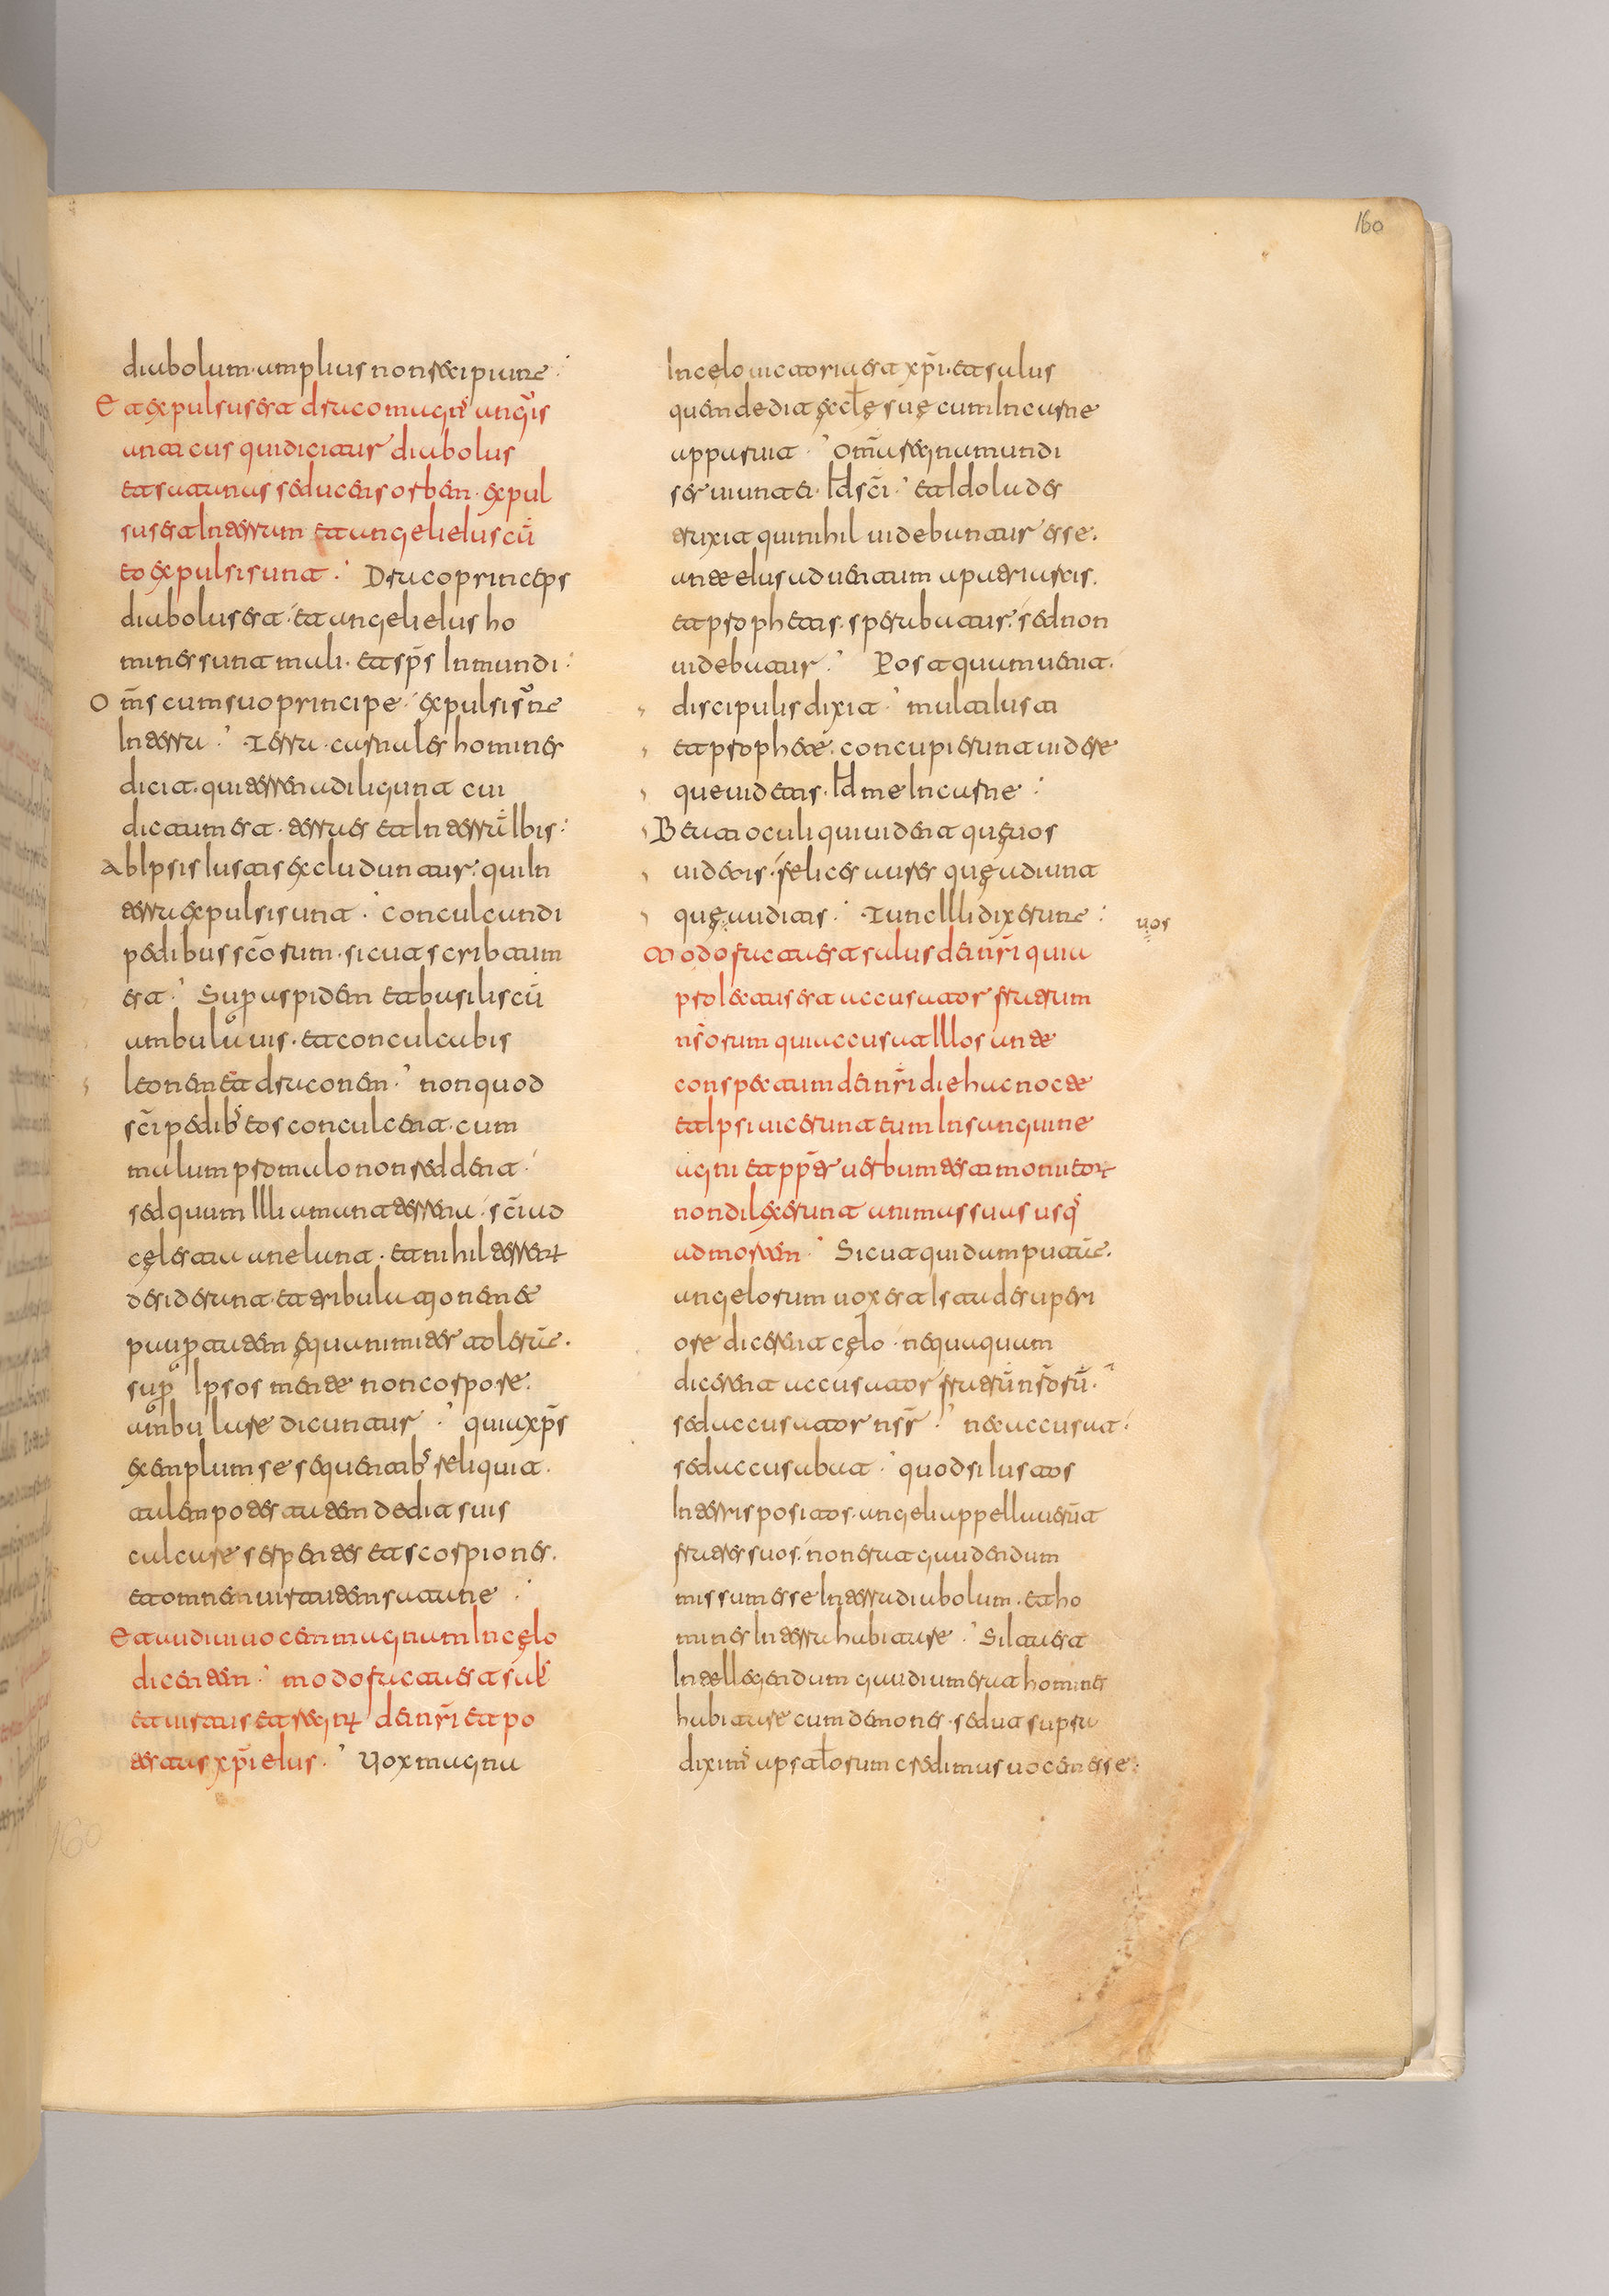 diabolum· amplius non recipiant:
Et expulsus est draco magn' anguis
anticus qui dicitur diabolus
et satanas seducens orbem· expul
sus est In terram et angeli eIus cū
eo expulsi sunt· Draco princeps
diabolus est· et angeli eIus ho
mines sunt mali· et sp̄s Inmundi:
Om̄s cum suo principe· expulsi sunt
In terra· Terra· carnales homines
dicit· qui terrena diligunt cui
dictum est· terra es et In terra Ibis:
ab Ipsis Iustis excluduntur· qui In
terra expulsi sunt· conculcandi
pedibus sc̄orum· sicut scribtum
est· Super aspidem et basiliscū
ambulauis· et conculcabis
leonem et draconem· non quod
sc̄i pedib' eos conculcent· cum
malum pro malo non reddent·
sed quum Illi amant terrena· sc̄i ad
cęlestia anelant· et nihil terrenum
desiderant· et tribulationem et
paupertatem ęquanimiter tolerāt·
super Ipsos mente non corpore·
ambulare dicuntur· quia xp̄s
exemplum se sequentib' reliquit·
talem potestatem dedit suis
calcare serpentes et scorpiones·
et omnem uirtutem satane
Et audiui uocem magnam In cęlo
dicentem· modo facta est sal'
et uirtus et regnum dei nr̄i et po
testas xp̄i eIus· Uox magna
In cęlo uictoria est xp̄i· et salus
quem dedit ęccłę suę cum In carne
apparuit· Om̄a regna mundi
seruiunt ei· Id sc̄i· et Idola des
truxit qui nihil uidebantur esse·
ante eIus aduentum a patriarcis·
et prophetis· sperabatur· sed non
uidebatur· Postquum uenit·
discipulis dixit· multi Iusti
et prophete· concupierunt uidere
que uidetis· Id me In carne:
Beati oculi qui uident quę uos
uidetis· felices aures quę audiunt
quę auditis· Tunc Illi dixerunt:
uos
Modo facta est salus dei nr̄i quia
proIectus est accusator fratrum
nr̄orum qui accusat Illos ante
conspectum dei nr̄i die hac nocte
et Ipsi uicerunt eum In sanguine
agni et pp̄ter uerbum testimoni eorum
non dilexerunt animas suas usq'
ad mortem· Sicut quidam putāt·
angelorum uox est Ista· de superi
ore dicentia cęlo· nequaquam
dicerent accusator fratrū nr̄orū·
sed accusator nr̄· nec accusat·
sed accusabat· quod si Iustos
In terris positos· angeli appellauerūt
fratres suos· non erat gaudendum
missum esse In terra diabolum· et ho
mines In terra habitare· Si Ita est
Intellegendum gaudium erat homines
habitare cum demones· sed ut supra
dixim' apsłorum credimus uocem esse:
160
160